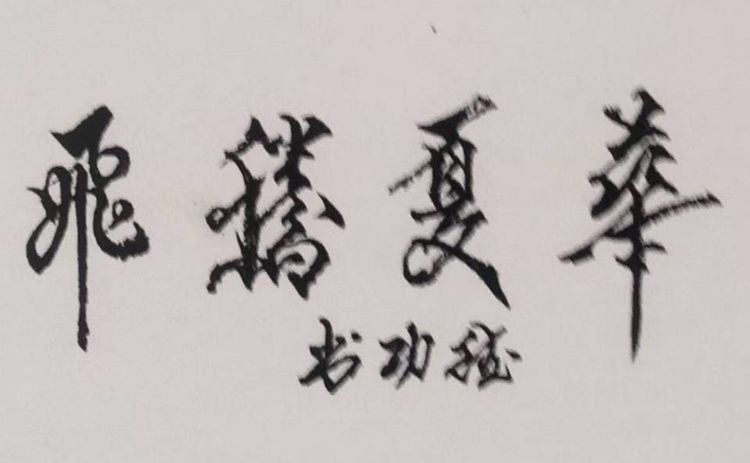 華夏騰飛
功书